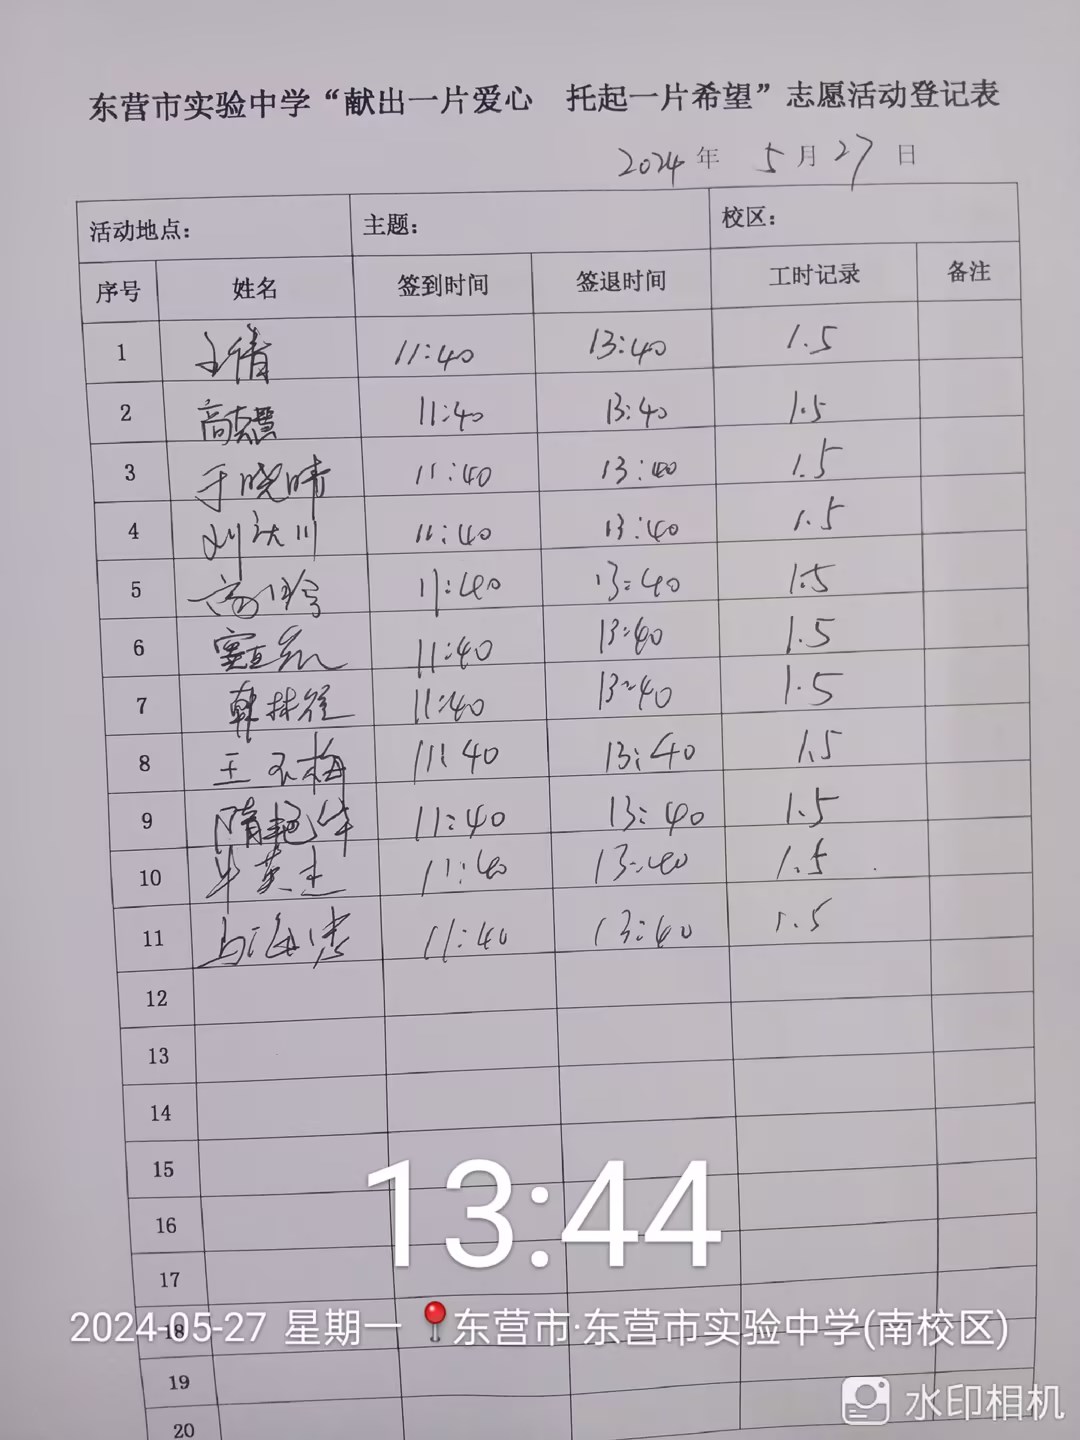 东营市实验中学“献出一片爱心 托起一片希望”志愿活动登记表
2024年 5月27日
活动地点： 主题： 校区：
序号 姓名 签到时间 签退时间 工时记录 备注
1 王倩 11:40 13:40 1.5
2 高 11:40 13:40 1.5
3 于晓晴 11:40 13:40 1.5
4 刘 川 11:40 13:40 1.5
5 高 11:40 13:40 1.5
6 11:40 13:40 1.5
7 韩林 11:40 13:40 1.5
8 王 梅 11:40 13:40 1.5
9 隋艳华 11:40 13:40 1.5
10 英 11:40 13:40 1.5
11 马海 11:40 13:40 1.5
12
13
14
15
16
13:44
17
18
2024-05-27 星期一 东营市·东营市实验中学(南校区)
19
水印相机
20